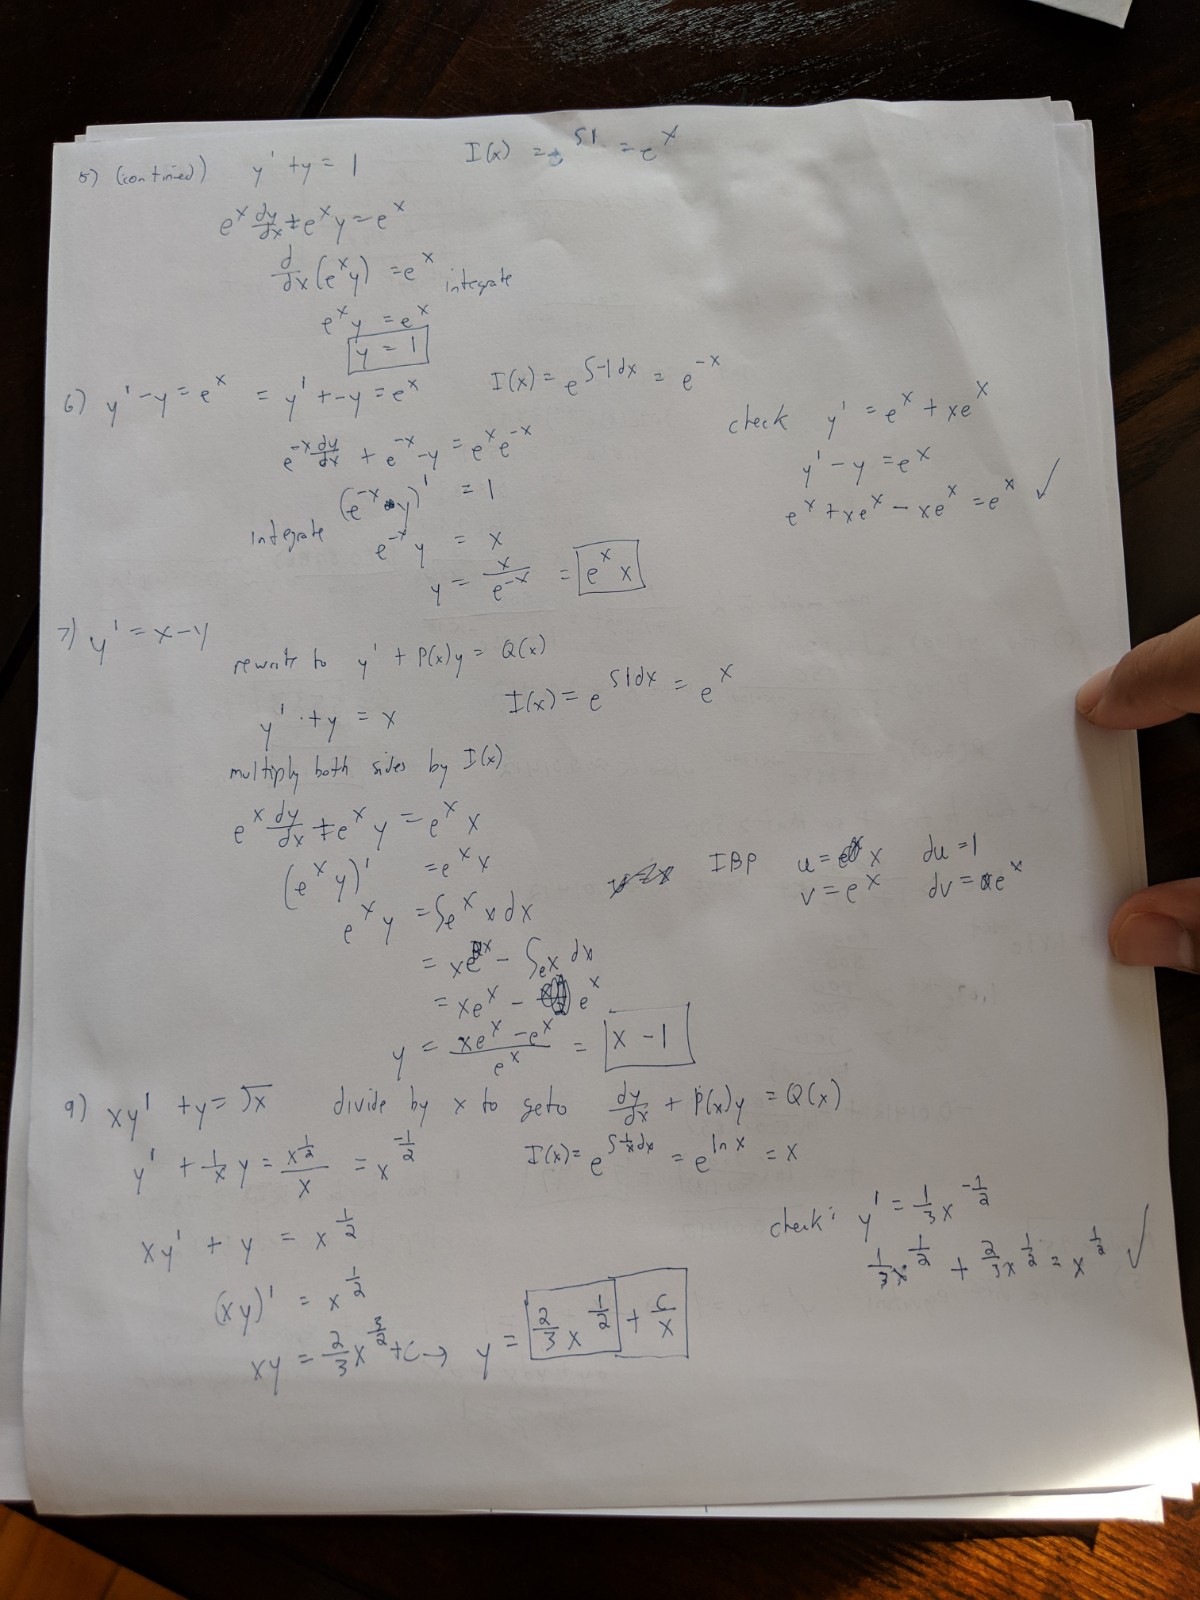 5) (continued) y' + y = 1 I(x) = e^∫1 = e^x
e^x dy/dx + e^x y = e^x
d/dx (e^x y) = e^x integrate
e^x y = e^x
y = 1
6) y' - y = e^x = y' + -y = e^x I(x) = e^∫-1dx = e^-x
e^-x dy/dx + e^-x -y = e^x e^-x
(e^-x y)' = 1
integrate e^-x y = x
y = x/e^-x = e^x x
check y' = e^x + xe^x
y' - y = e^x
e^x + xe^x - xe^x = e^x ✓
7) y' = x - y
rewrite to y' + P(x)y = Q(x)
y' + y = x I(x) = e^∫1dx = e^x
multiply both sides by I(x)
e^x dy/dx + e^x y = e^x x
(e^x y)' = e^x x
e^x y = ∫e^x x dx
IBP u = x du = 1
v = e^x dv = e^x
= xe^x - ∫e^x dx
= xe^x - e^x
y = (xe^x - e^x)/e^x = x - 1
9) xy' + y = √x divide by x to geto dy/dx + P(x)y = Q(x)
y' + 1/x y = x^1/2 / x = x^-1/2 I(x) = e^∫1/x dx = e^ln x = x
xy' + y = x^1/2
(xy)' = x^1/2
xy = 2/3 x^3/2 + C → y = 2/3 x^1/2 + C/x
check: y' = 1/3 x^-1/2
1/3 x^1/2 + 2/3 x^1/2 = x^1/2 ✓